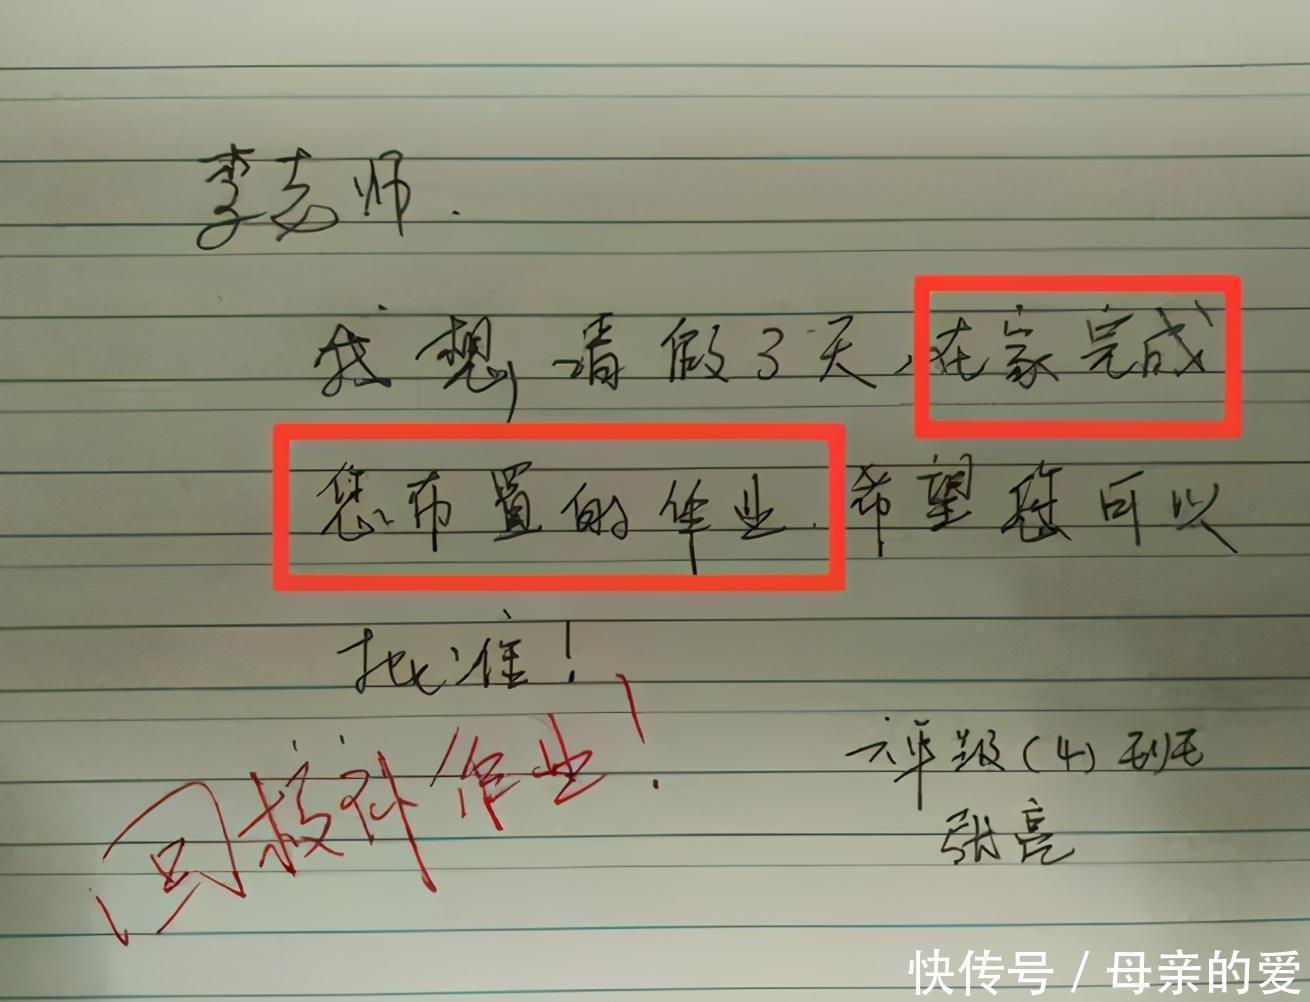 李老师.
我想请假3天,在家完成
您布置的作业.希望您可以
批准!
回校补作业!
六年级(4)班
张亮
快传号/母亲的爱